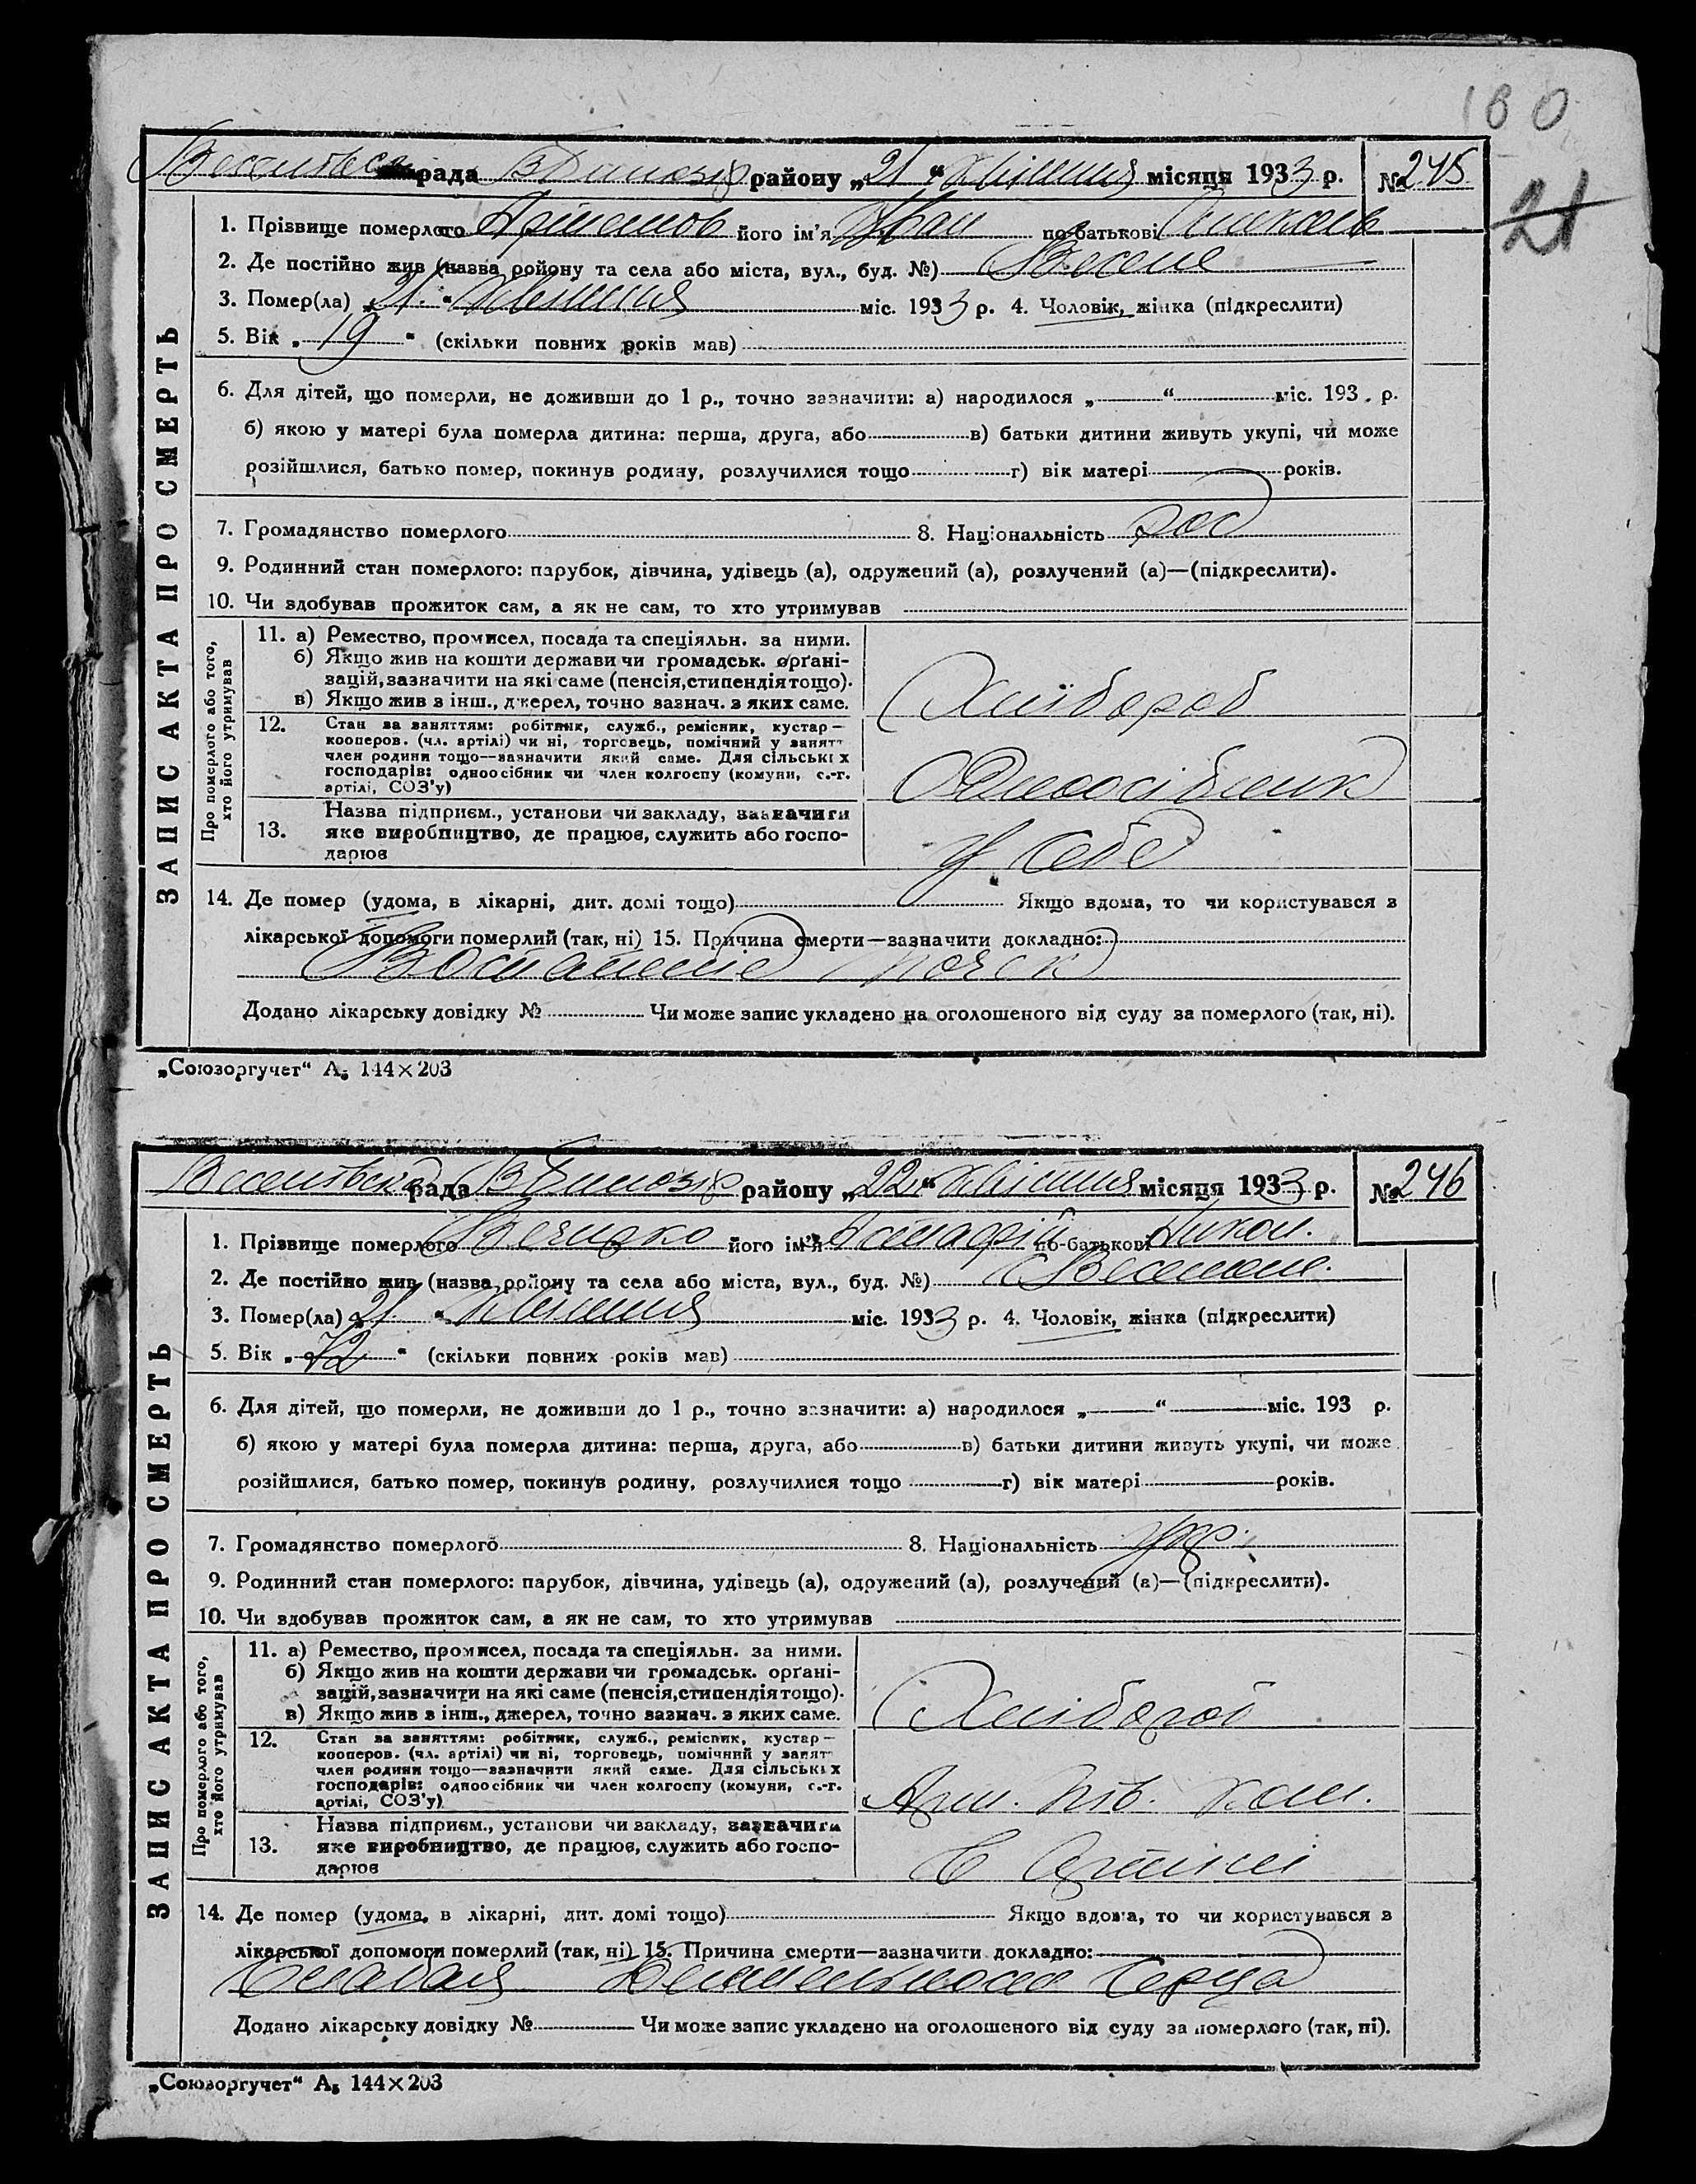 180
21
рада В Билозір району „21“ Квітня місяця 1933 р. № 245
1. Прізвище померлого його ім'я Іван по-батькові
2. Де постійно жив (назва ройону та села або міста, вул., буд. №) Веселе
3. Помер(ла) „21“ Квітня міс. 1933 р. 4. Чоловік, жінка (підкреслити)
5. Вік „19“ (скільки повних років мав)
6. Для дітей, що померли, не доживши до 1 р., точно зазначити: а) народилося „ “ міс. 193 . р.
б) якою у матері була померла дитина: перша, друга, або в) батьки дитини живуть укупі, чи може
розійшлися, батько помер, покинув родину, розлучилися тощо г) вік матері років.
7. Громадянство померлого 8. Національність рос
9. Родинний стан померлого: парубок, дівчина, удівець (а), одружений (а), розлучений (а)—(підкреслити).
10. Чи здобував прожиток сам, а як не сам, то хто утримував
ЗАПИС АКТА ПРО СМЕРТЬ
Про померлого або того,
хто його утримував
11. а) Ремество, промисел, посада та спеціяльн. за ними.
б) Якщо жив на кошти держави чи громадськ. орґані-
зацій, зазначити на які саме (пенсія, стипендія тощо).
в) Якщо жив з інш., джерел, точно зазнач. з яких саме.
Хлібороб
12. Стан за заняттям: робітник, служб., ремісник, кустар—
кооперов. (чл. артілі) чи ні, торговець, помічний у занят
член родини тощо—зазначити який саме. Для сільських
господарів: одноосібник чи член колгоспу (комуни, с.-г.
артілі, СОЗ'у)
Одноосібник
13. Назва підприєм., установи чи закладу, зазначити
яке виробництво, де працює, служить або госпо-
дарює
У себе
14. Де помер (удома, в лікарні, дит. домі тощо) Якщо вдома, то чи користувався з
лікарської допомоги померлий (так, ні) 15. Причина смерти—зазначити докладно:
Воспаленіе почек
Додано лікарську довідку № Чи може запис укладено на оголошеного від суду за померлого (так, ні).
„Союзоргучет“ А5 144×203
рада В Билозір району „22“ Квітня місяця 1933 р. № 246
1. Прізвище померлого його ім'я по-батькові Никол.
2. Де постійно жив (назва ройону та села або міста, вул., буд. №)
3. Помер(ла) „21“ Квітня міс. 1933 р. 4. Чоловік, жінка (підкреслити)
5. Вік „72“ (скільки повних років мав)
6. Для дітей, що померли, не доживши до 1 р., точно зазначити: а) народилося „ “ міс. 193 р.
б) якою у матері була померла дитина: перша, друга, або в) батьки дитини живуть укупі, чи може
розійшлися, батько помер, покинув родину, розлучилися тощо г) вік матері років.
7. Громадянство померлого 8. Національність укр.
9. Родинний стан померлого: парубок, дівчина, удівець (а), одружений (а), розлучений (а)—(підкреслити).
10. Чи здобував прожиток сам, а як не сам, то хто утримував
ЗАПИС АКТА ПРО СМЕРТЬ
Про померлого або того,
хто його утримував
11. а) Ремество, промисел, посада та спеціяльн. за ними.
б) Якщо жив на кошти держави чи громадськ. орґані-
зацій, зазначити на які саме (пенсія, стипендія тощо).
в) Якщо жив з інш., джерел, точно зазнач. з яких саме.
Хлібороб
12. Стан за заняттям: робітник, служб., ремісник, кустар—
кооперов. (чл. артілі) чи ні, торговець, помічний у занят
член родини тощо—зазначити який саме. Для сільських
господарів: одноосібник чи член колгоспу (комуни, с.-г.
артілі, СОЗ'у)
13. Назва підприєм., установи чи закладу, зазначити
яке виробництво, де працює, служить або госпо-
дарює
в Артілі
14. Де помер (удома, в лікарні, дит. домі тощо) Якщо вдома, то чи користувався з
лікарської допомоги померлий (так, ні) 15. Причина смерти—зазначити докладно:
Слабая Деятельность Серца
Додано лікарську довідку № Чи може запис укладено на оголошеного від суду за померлого (так, ні).
„Союзоргучет“ А5 144×203